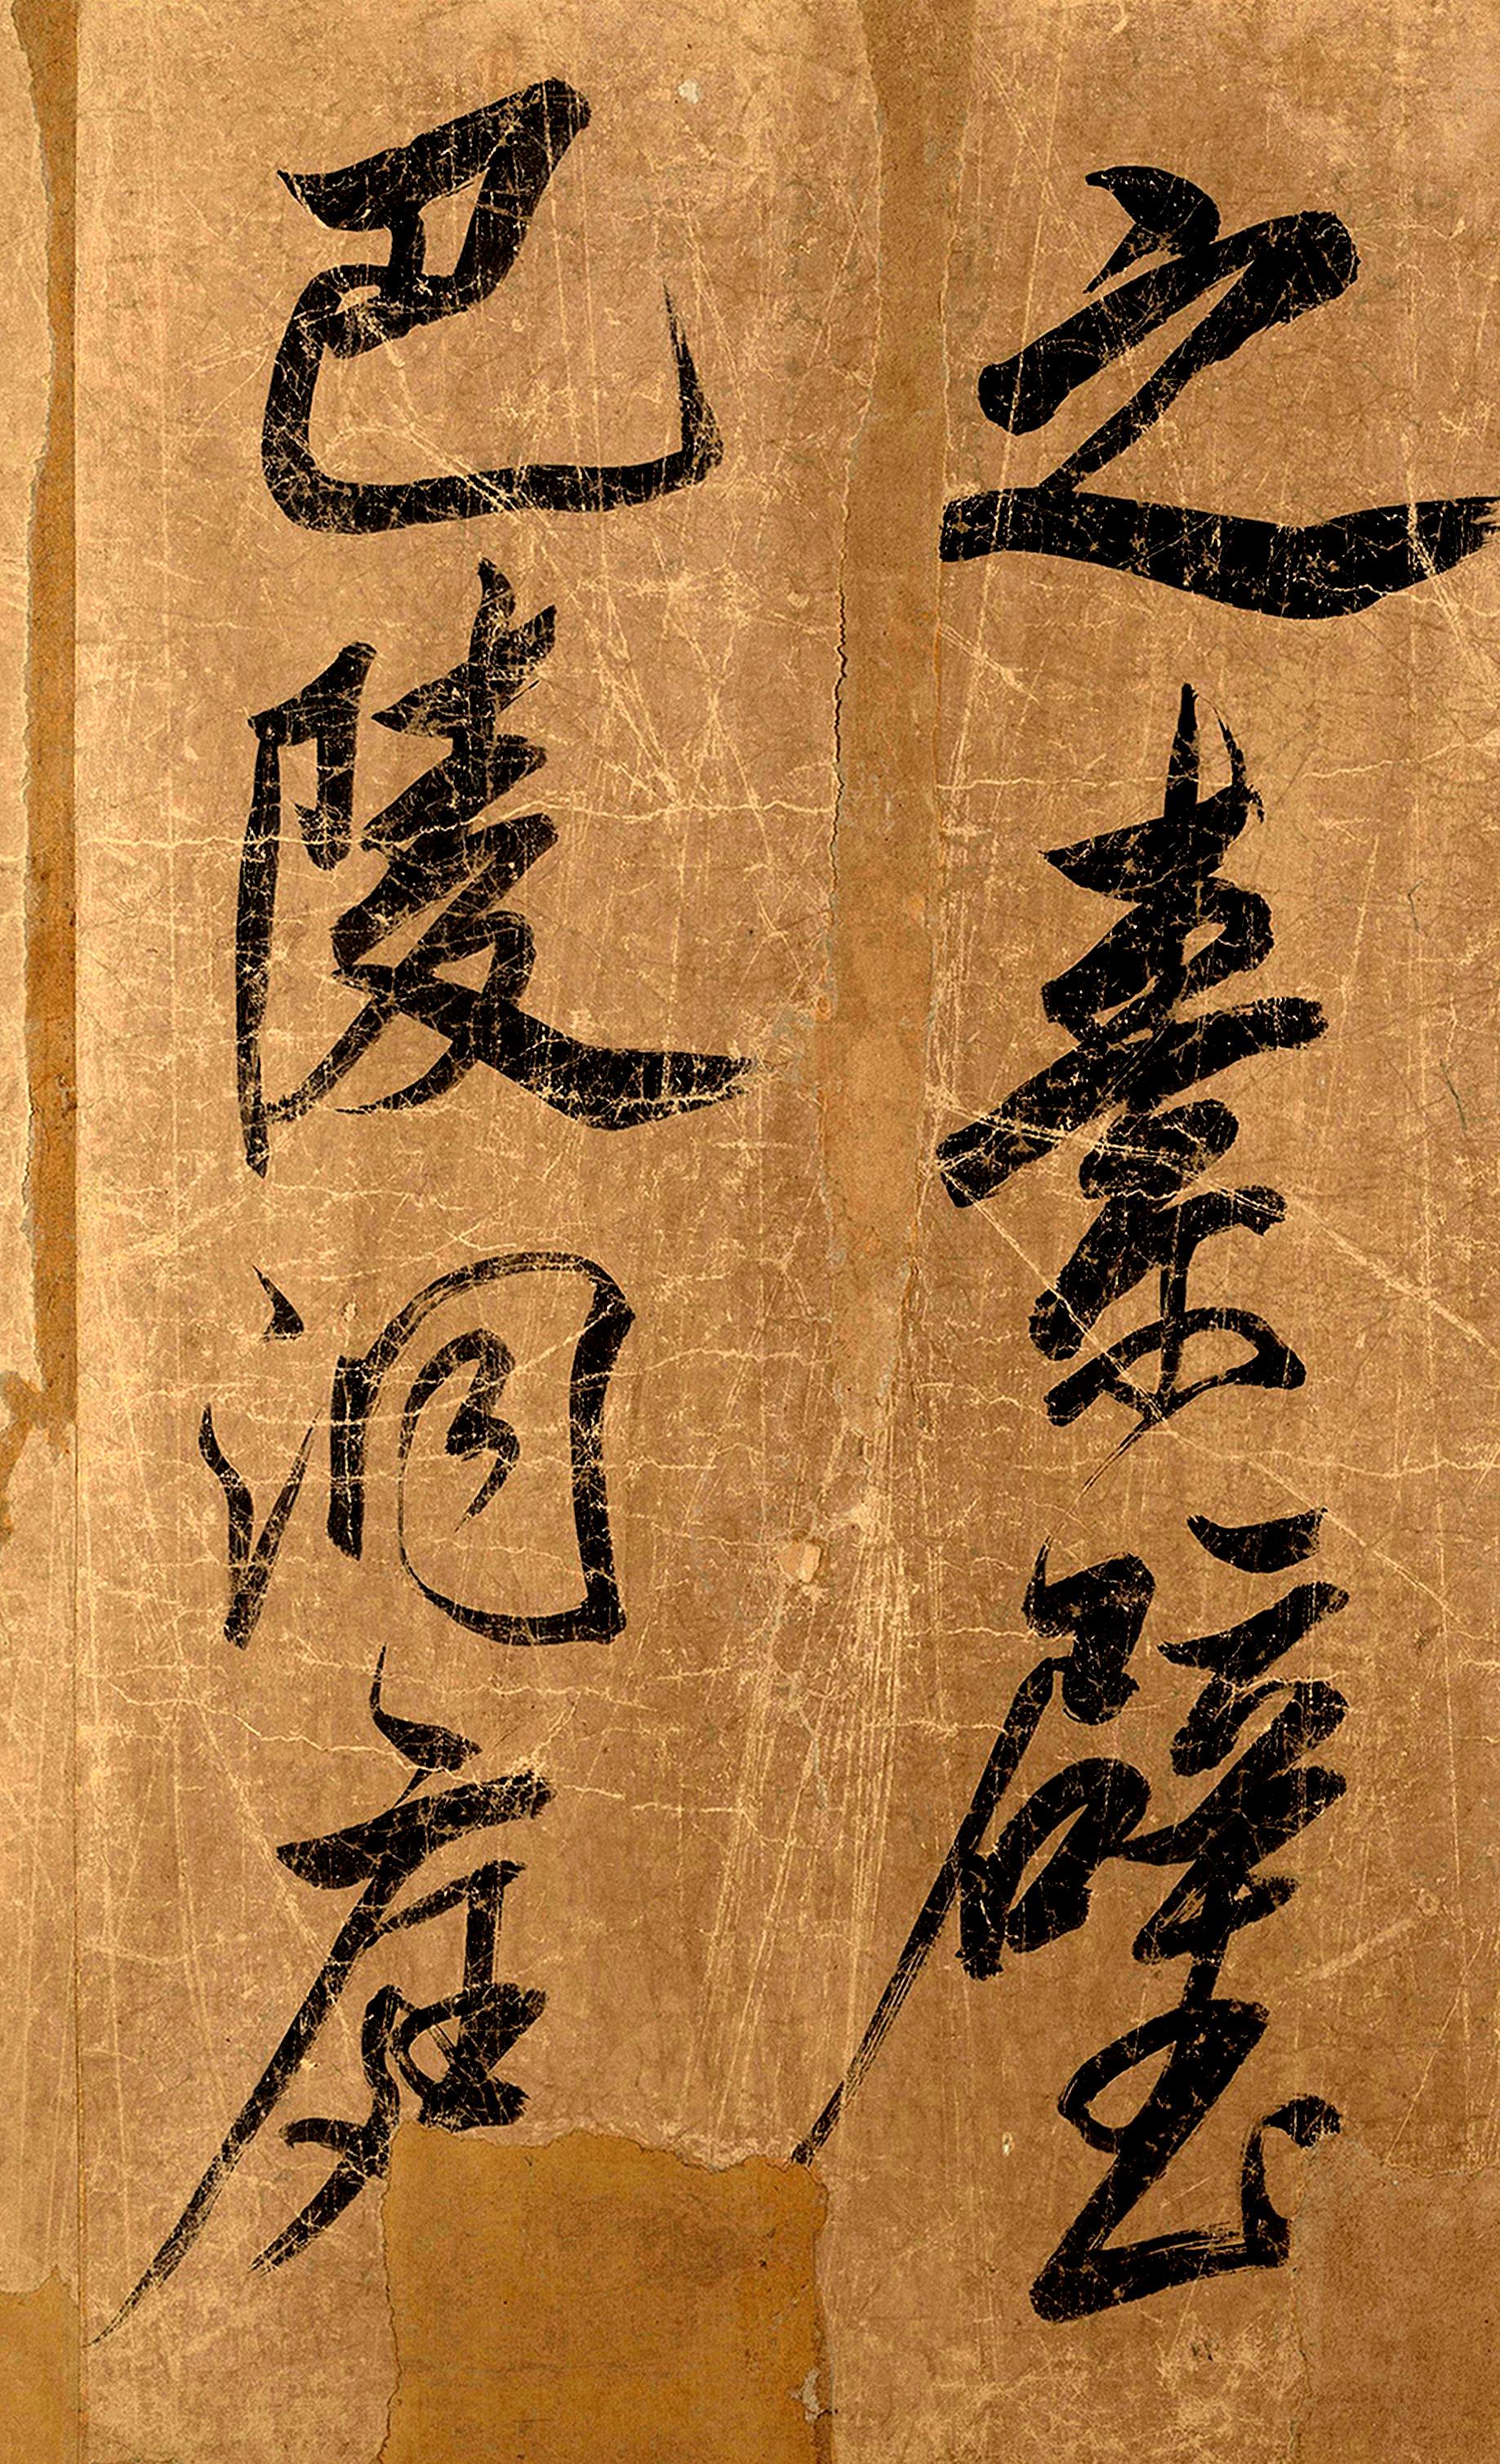 之素壁
巴陵洞庭